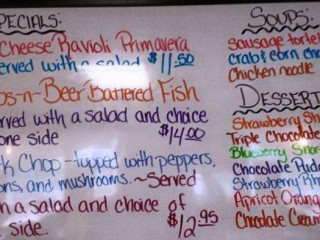 PECIALS:
Cheese Ravioli Primavera
erved with a salad $11.50
os-n-Beer Battered Fish
rved with a salad and choice
one side $14.00
k Chop - topped with peppers,
ons, and mushrooms. ~Served
h a salad and choice of
side. $12.95
SOUPS:
sausage tortel
crab & corn cho
chicken noodle
DESSERT
Strawberry Sho
Triple Chocolate
Blueberry Snor
Chocolate Pudd
Strawberry Rh
Apricot Orang
Chocolate Cream